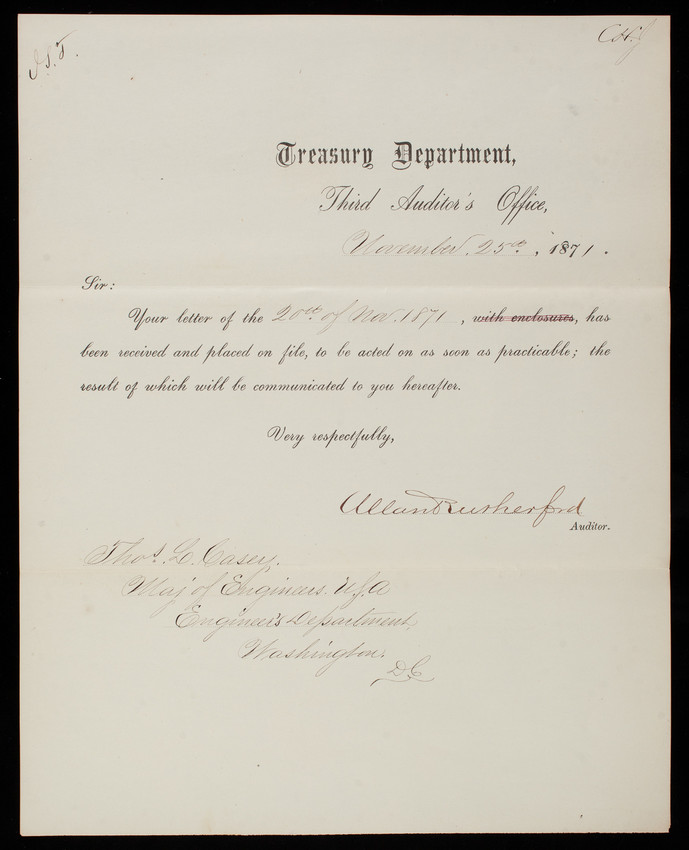 J.S.T.
Treasury Department,
Third Auditor's Office,
November 25th, 1871.
Sir:
Your letter of the 20th of Nov. 1871, with enclosures, has
been received and placed on file, to be acted on as soon as practicable; the
result of which will be communicated to you hereafter.
Very respectfully,
Allan Rutherford
Auditor.
Thos. L. Casey.
Maj of Engineers. U.S.A
Engineers Department.
Washington.
D.C